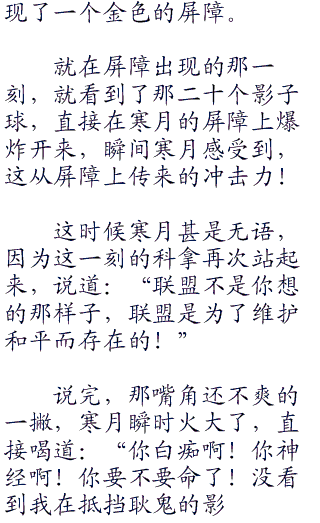 现了一个金色的屏障。
就在屏障出现的那一
刻，就看到了那二十个影子
球，直接在寒月的屏障上爆
炸开来，瞬间寒月感受到，
这从屏障上传来的冲击力！
这时候寒月甚是无语，
因为这一刻的科拿再次站起
来，说道：“联盟不是你想
的那样子，联盟是为了维护
和平而存在的！”
说完，那嘴角还不爽的
一撇，寒月瞬时火大了，直
接喝道：“你白痴啊！你神
经啊！你要不要命了！没看
到我在抵挡耿鬼的影